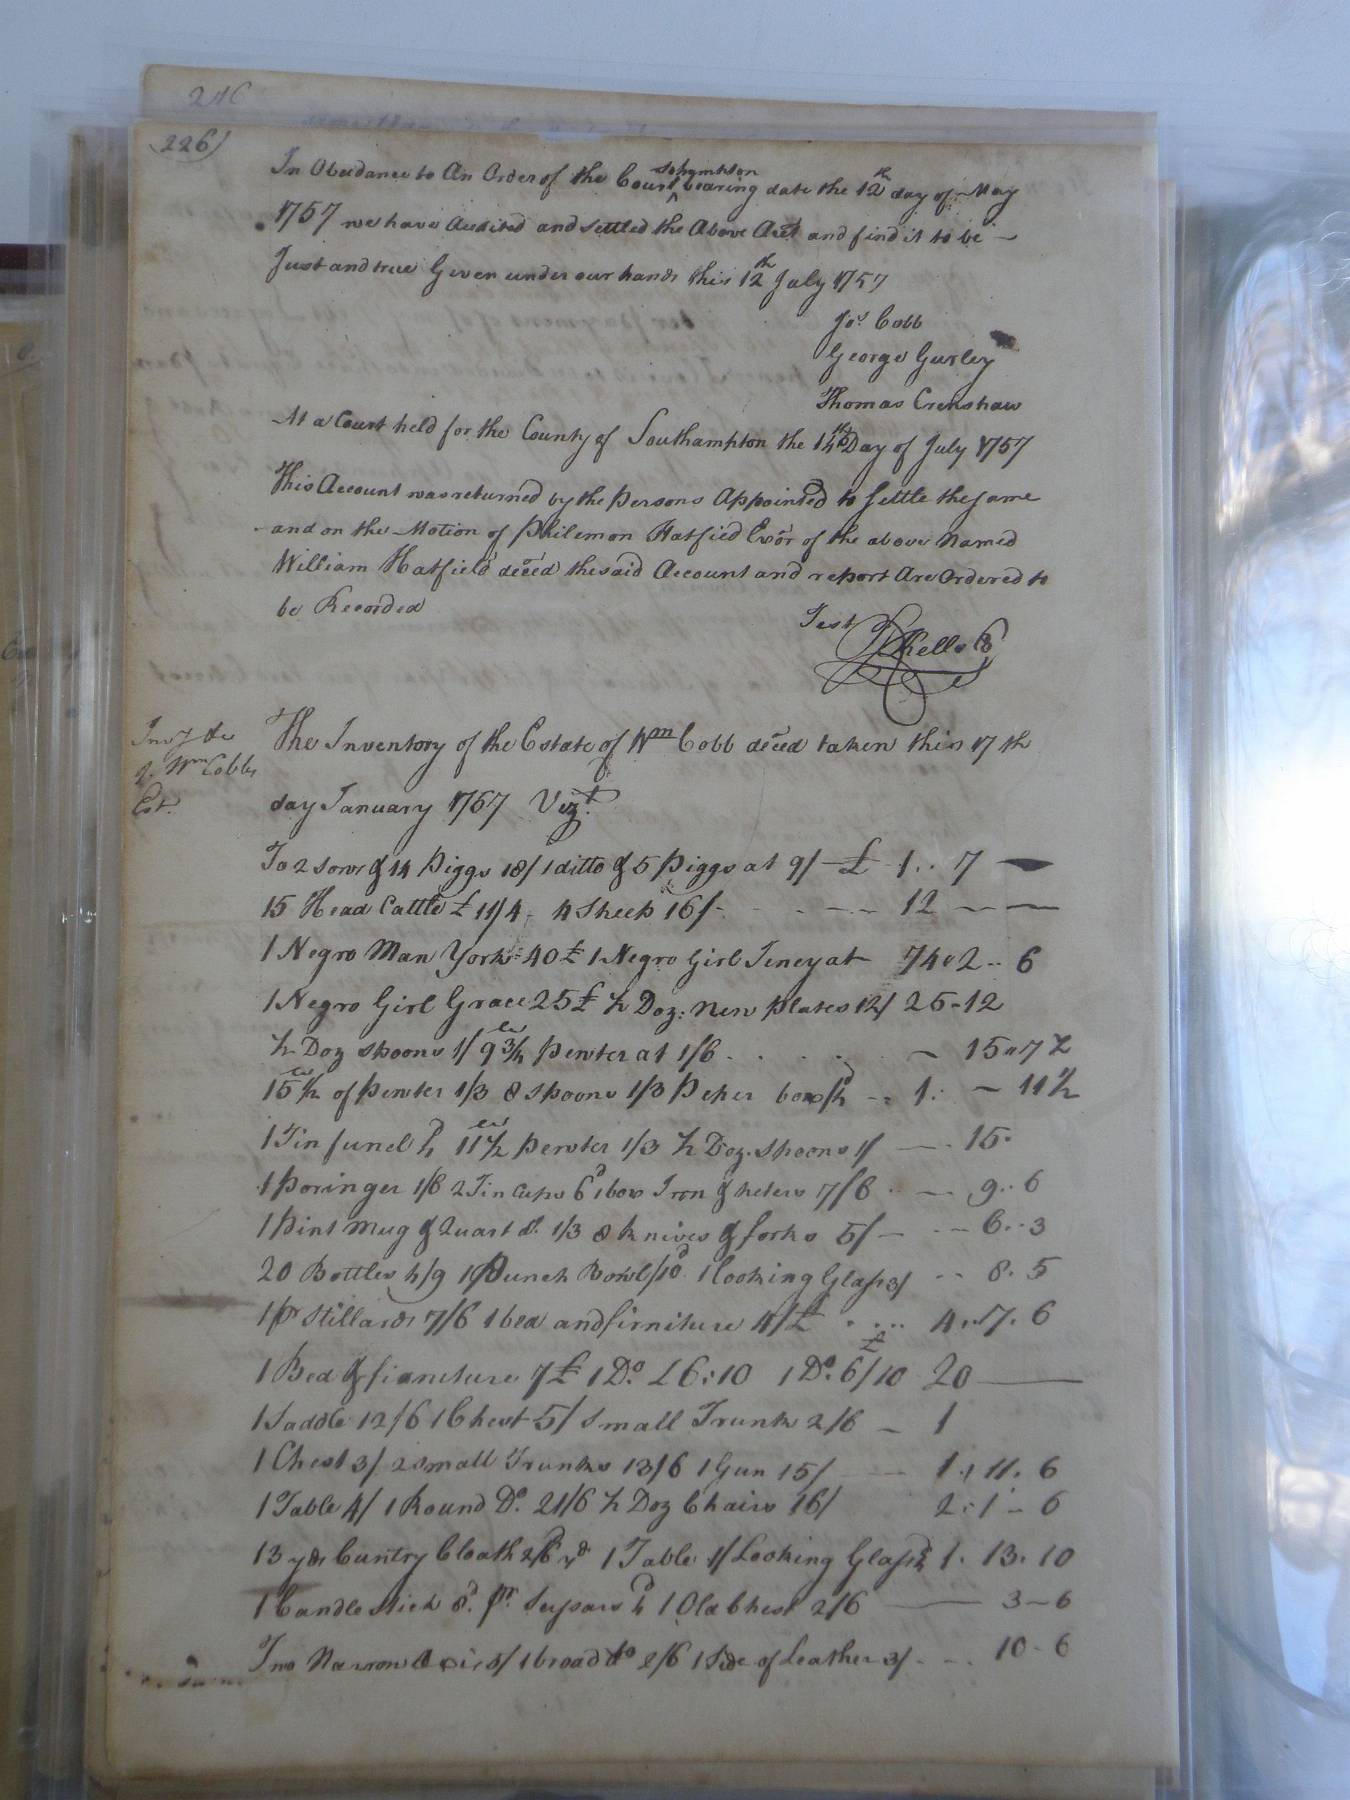 246
226)
In Obedance to An Order of the Court Sohampton bearing date the 12th day of May
1757 we have Audited and settled the Above Acct and find it to be —
Just and true Given under our hands this 12th July 1757
Jos. Cobb
George Gurley
Thomas Crenshaw
At a Court held for the County of Southampton the 14th Day of July 1757
This Account was returned by the Persons Appointed to Settle the same
and on the Motion of Philemon Hatfied Exor of the above Named
William Hatfield deced the said Account and report Are Ordered to
be Recorded
Test
Kello C
Invy &c
Wm Cobbs
Est.
The Inventory of the Estate of Wm Cobb deced taken this 17th
day January 1757 Vizt.
To 2 sows & 14 Piggs 18/ 1 ditto & 5 Piggs at 9/ — £ 1 .. 7 —
15 Head Cattle £ 11/4 - 4 Sheep 16/- - - - 12 — —
1 Negro Man York 40£ 1 Negro Girl Teney at 74 " 2 .. 6
1 Negro Girl Grace 25£ ½ Doz: New Plates 12/ 25 - 12
½ Doz spoons 1/ 9¾ lb Pewter at 1/6 . . . . — 15 " 7 ½
15½ lb of Pewter 1/3 8 Spoons 1/3 Peper box /4d -- 1 : — 11½
1 Tin funel 4d 11½ lb Pewter 1/3 ½ Doz. Spoons 1/ —. 15.
1 Poringer 1/6 2 Tin Cups 6d 1 box Iron & heters 7/6 . — 9 .. 6
1 Pint Mug & Quart do. 1/3 8 knives & forks 5/ — - - 6 .. 3
20 Bottles 4/9 1 Punch Bowl /10d 1 looking Glass 3/ -- 8 . 5
1 pr Stillards 7/6 1 bed and firniture 4/£ . ... 4 .. 7 . 6
1 Bed & firneture 7£ 1 Do. £6:10 1 Do. 6£/10 20 —
1 Saddle 12/6 1 Chest 5/ Small Trunk 2/6 — 1
1 Chest 3/ 2 small Trunks 13/6 1 Gun 15/ — 1 : 11 . 6
1 Table 4/ 1 Round Do. 21/6 ½ Doz Chairs 16/ 2 : 1 - 6
13 yds Cuntry Cloath 2/6 yd 1 Table 1/ Looking Glass 4d 1 . 13 . 10
1 Candlestick 8d. pr. 4d 1 Old Chest 2/6 — 3 - 6
Two Narrow 1 broad do 2/6 1 Side of Leather 3/ - - - 10 - 6